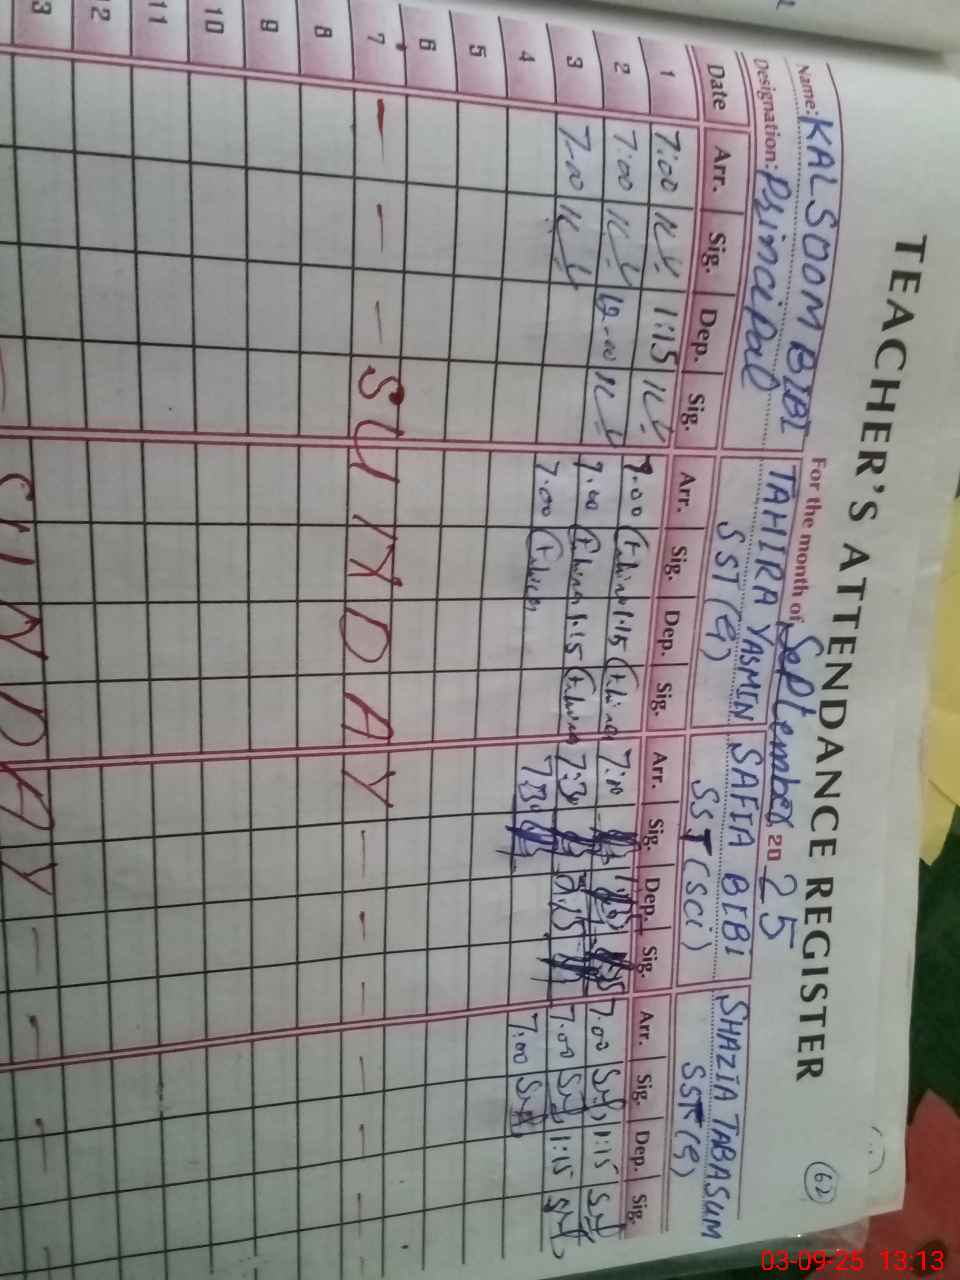 TEACHER'S ATTENDANCE REGISTER
62
For the month of September 2025
Name: KALSOOM BIBI TAHIRA YASMIN SAFIA BIBI SHAZIA TABASUM
Designation: Principal SST(G) SST(SCi) SST(G)
Date Arr. Sig. Dep. Sig. Arr. Sig. Dep. Sig. Arr. Sig. Dep. Sig. Arr. Sig. Dep. Sig.
1 7:00 1:15 7.00 Tahira 1.15 Tahira 7:10 7.00 1:15
2 7:00 12-00 7.00 Tahira 1.15 Tahira 7:30 7.00 1:15
3 7:00 7.00 Tahira 7:30 7.00
4
5
6
7 - - - SUNDAY - - - - - -
8
9
10
11
12
13
SUNDAY - - -
03-09-25 13:13